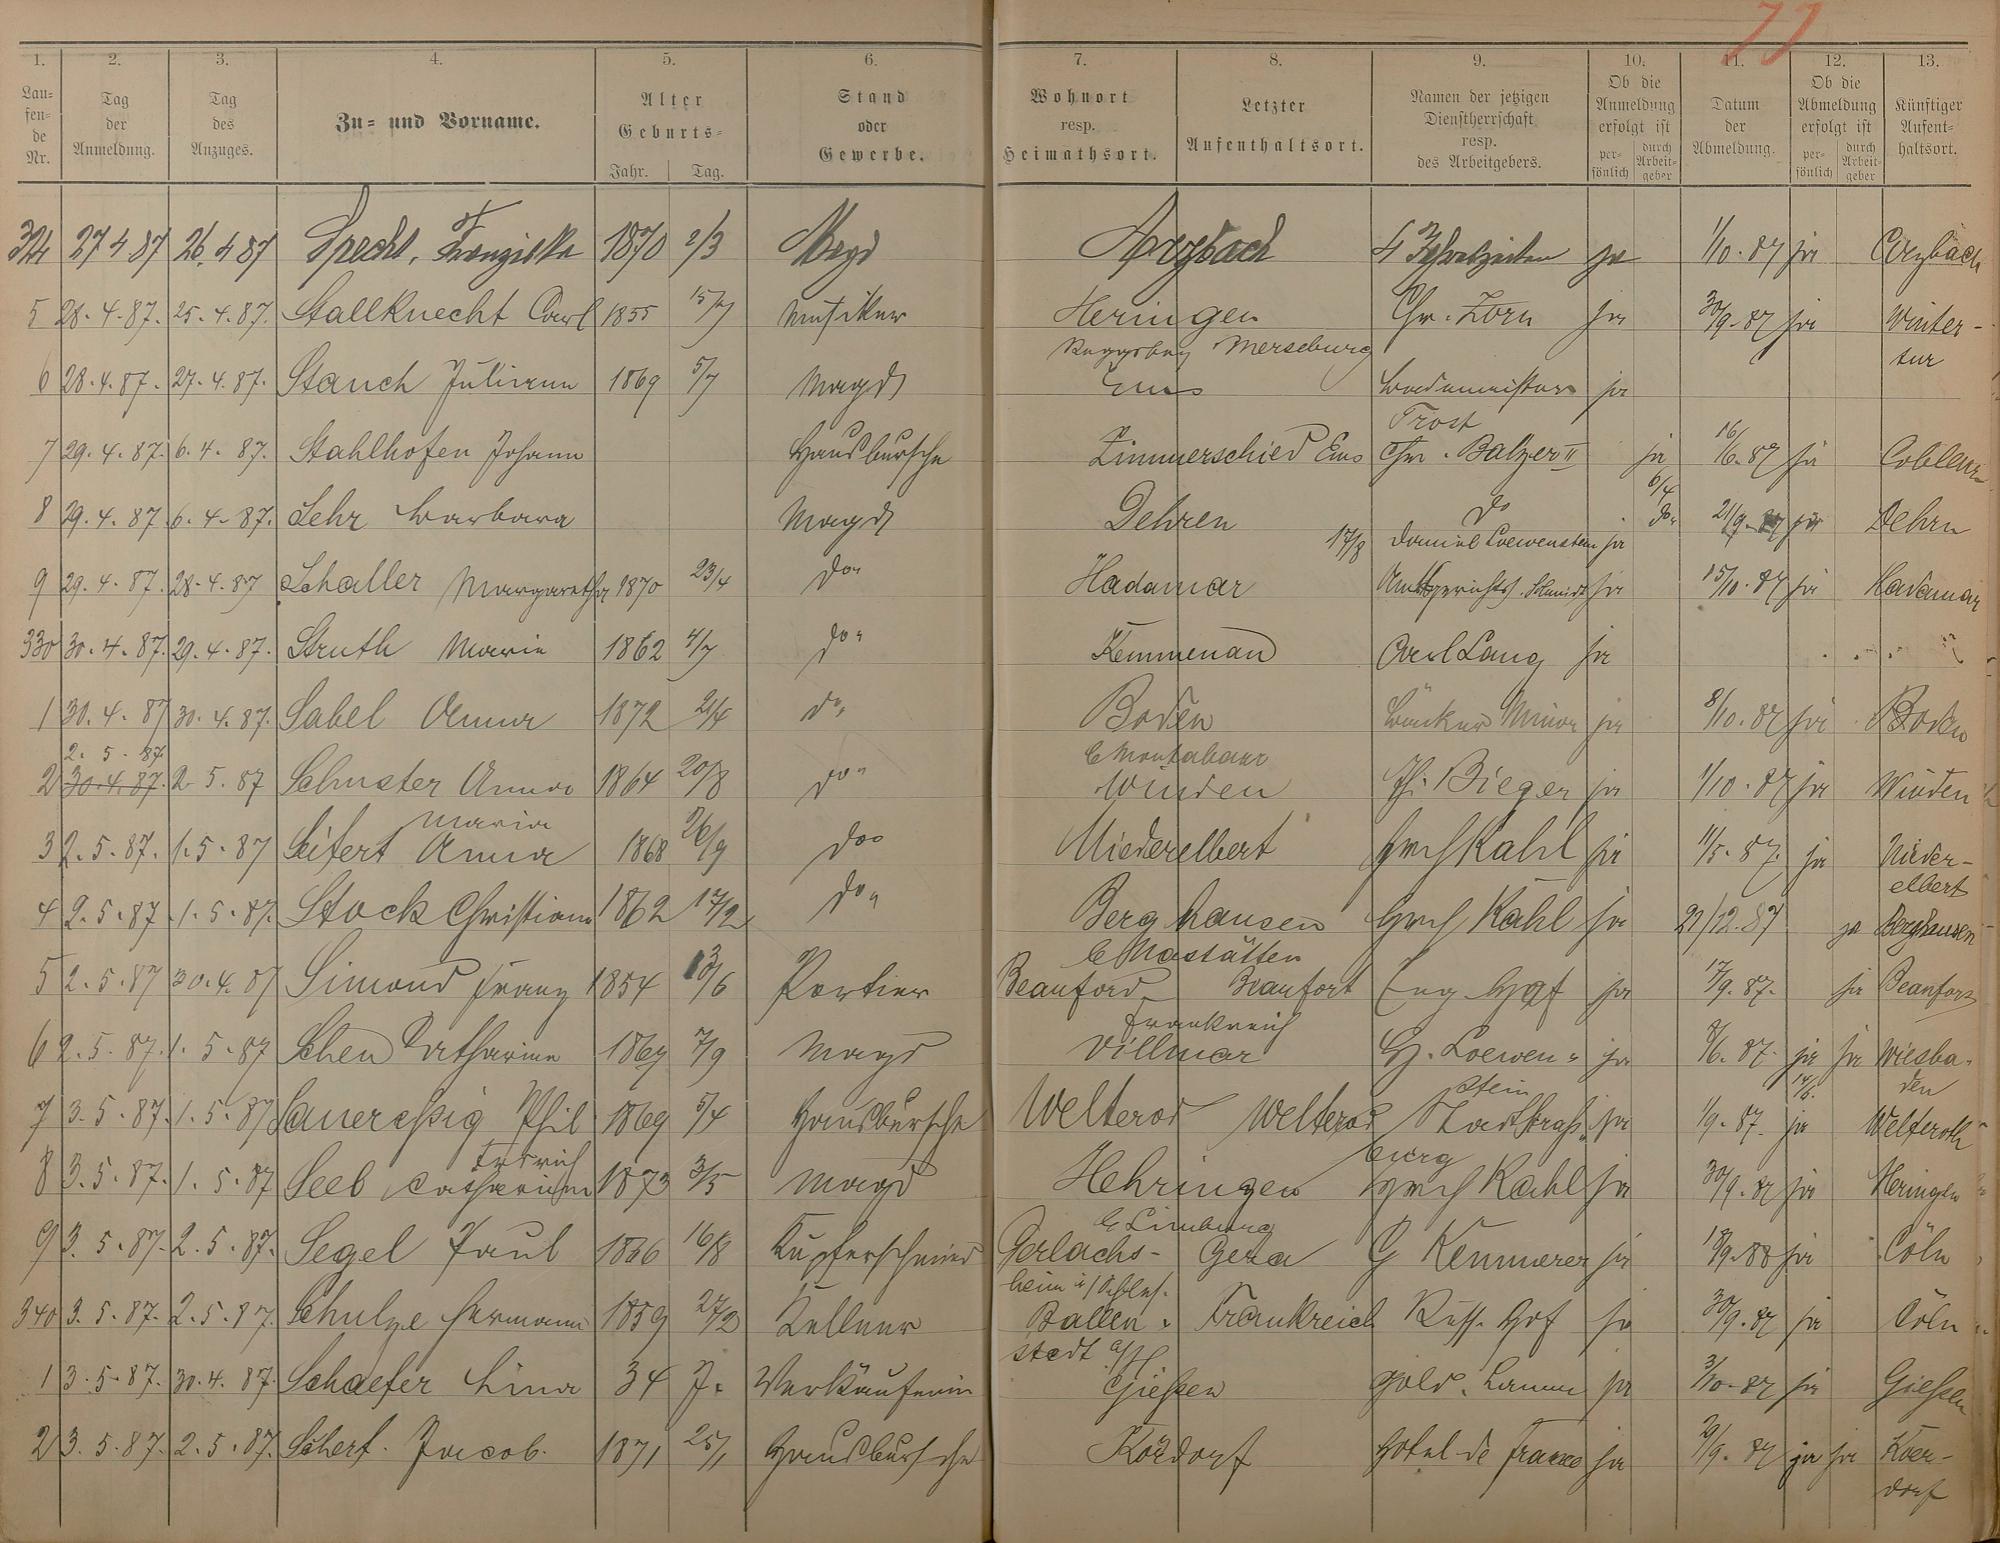 77
1. 2. 3. 4. 5. 6. 7. 8. 9. 10. 11. 12. 13.
Lau=
fen=
de
Nr.
Tag
der
Anmeldung.
Tag
des
Anzuges.
Zu= und Vorname.
Alter
Geburts=
Jahr. Tag.
Stand
oder
Gewerbe.
Wohnort
resp.
Heimathsort.
Letzter
Aufenthaltsort.
Namen der jetzigen
Dienstherrschaft
resp.
des Arbeitgebers.
Ob die
Anmeldung
erfolgt ist
per=
sönlich
durch
Arbeit=
geber
Datum
der
Abmeldung.
Ob die
Abmeldung
erfolgt ist
per=
sönlich
durch
Arbeit=
geber
Künftiger
Aufent=
haltsort.
324 27 4 87 26. 4 87 Specht, Franziska 1870 2/3 Magd Arzbach 4 Jahreszeiten ja 1/10. 87 ja Arzbach
5 28. 4. 87. 25. 4. 87. Stallknecht Carl 1855 15/7 Musiker Heringen Chr. Zorn ja 30/9. 87 ja Winter-
tur
Merseburg
6 28. 4. 87. 27. 4. 87. Stauch Juliane 1869 5/7 Magd Ems Bademeister ja
Trost
7 29. 4. 87. 6. 4. 87. Stahlhofen Johann Hausbursche Zimmerschied Ems Chr. Balzer II ja 16/6. 87 ja Coblenz
6/4
8 29. 4. 87 6. 4. 87. Lehr Barbara Magd Dehren do do. 21/9. 87 ja Dehrn
17/8 Daniel Loewenstein ja
9 29. 4. 87. 28. 4. 87 Schaller Margaretha 1870 23/4 do Hadamar Amtsgerichts. Schmidt ja 15/10. 87 ja Hadamar
330 30. 4. 87. 29. 4. 87. Struth Marie 1862 4/7 do Kemmenau Carl Lang ja
1 30. 4. 87 30. 4. 87. Sabel Anna 1872 21/4 do Boden Bäcker Minor ja 8/10. 87 ja Boden
b Montabaur
2. 5. 87.
2 30. 4. 87. 2. 5. 87 Schuster Anna 1864 20/8 do Winden Ph. Bieger ja 1/10. 87 ja Winden
Maria
3 2. 5. 87. 1. 5. 87 Seifert Anna 1868 26/9 do Niederelbert Hch Kahl ja 11/5. 87. ja Nieder-
elbert
4 2. 5. 87. 1. 5. 87. Stock Christiane 1862 17/2 do Berghausen Hch Kahl ja 21/12. 87 ja Berghausen
b Nastätten
5 2. 5. 87 30. 4. 87 Simond Franz 1854 13/6 Portier Beauford Beaufort Eng. Hof ja 17/9. 87. ja Beaufort
Frankreich
6 2. 5. 87. 1. 5. 87 Scheu Catharine 1869 7/9 Magd Villmar H. Loewen= ja 8/6. 87. ja ja Wiesba-
stein
den
7 3. 5. 87. 1. 5. 87 Saueressig Phil 1869 5/4 Hausbursche Welterod Welterod Stadt Straß= ja 1/9. 87. ja Welteroth
burg
8 3. 5. 87. 1. 5. 87 Seeb Catharine 1873 3/5 Magd Hehringen Hch Kahl ja 30/9. 87 ja Heringen
b Limburg
9 3. 5. 87. 2. 5. 87. Segel Paul 1866 16/8 Kupferschmied Gerlachs- Gera G Kemmerer ja 18/9. 88 ja Cöln
heim i/Schles.
340 3. 5. 87. 2. 5. 87. Schulze Hermann 1859 27/2 Kellner Ballen= Frankreich Russ. Hof ja 30/9. 87 ja Cöln
stedt a/H
1 3. 5. 87. 30. 4. 87. Schaefer Lina 34 J. Verkäuferin Giessen Gold. Lamm ja 3/10. 87 ja Giessen
2 3. 5. 87. 2. 5. 87. Scherf. Jacob. 1871 25/1 Hausbursche Kördorf Hotel de France ja 29/9. 87 ja ja Koer-
dorf